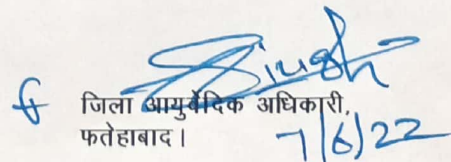 Singh
जिला आयुर्वेदिक अधिकारी,
फतेहाबाद। 7/6/22